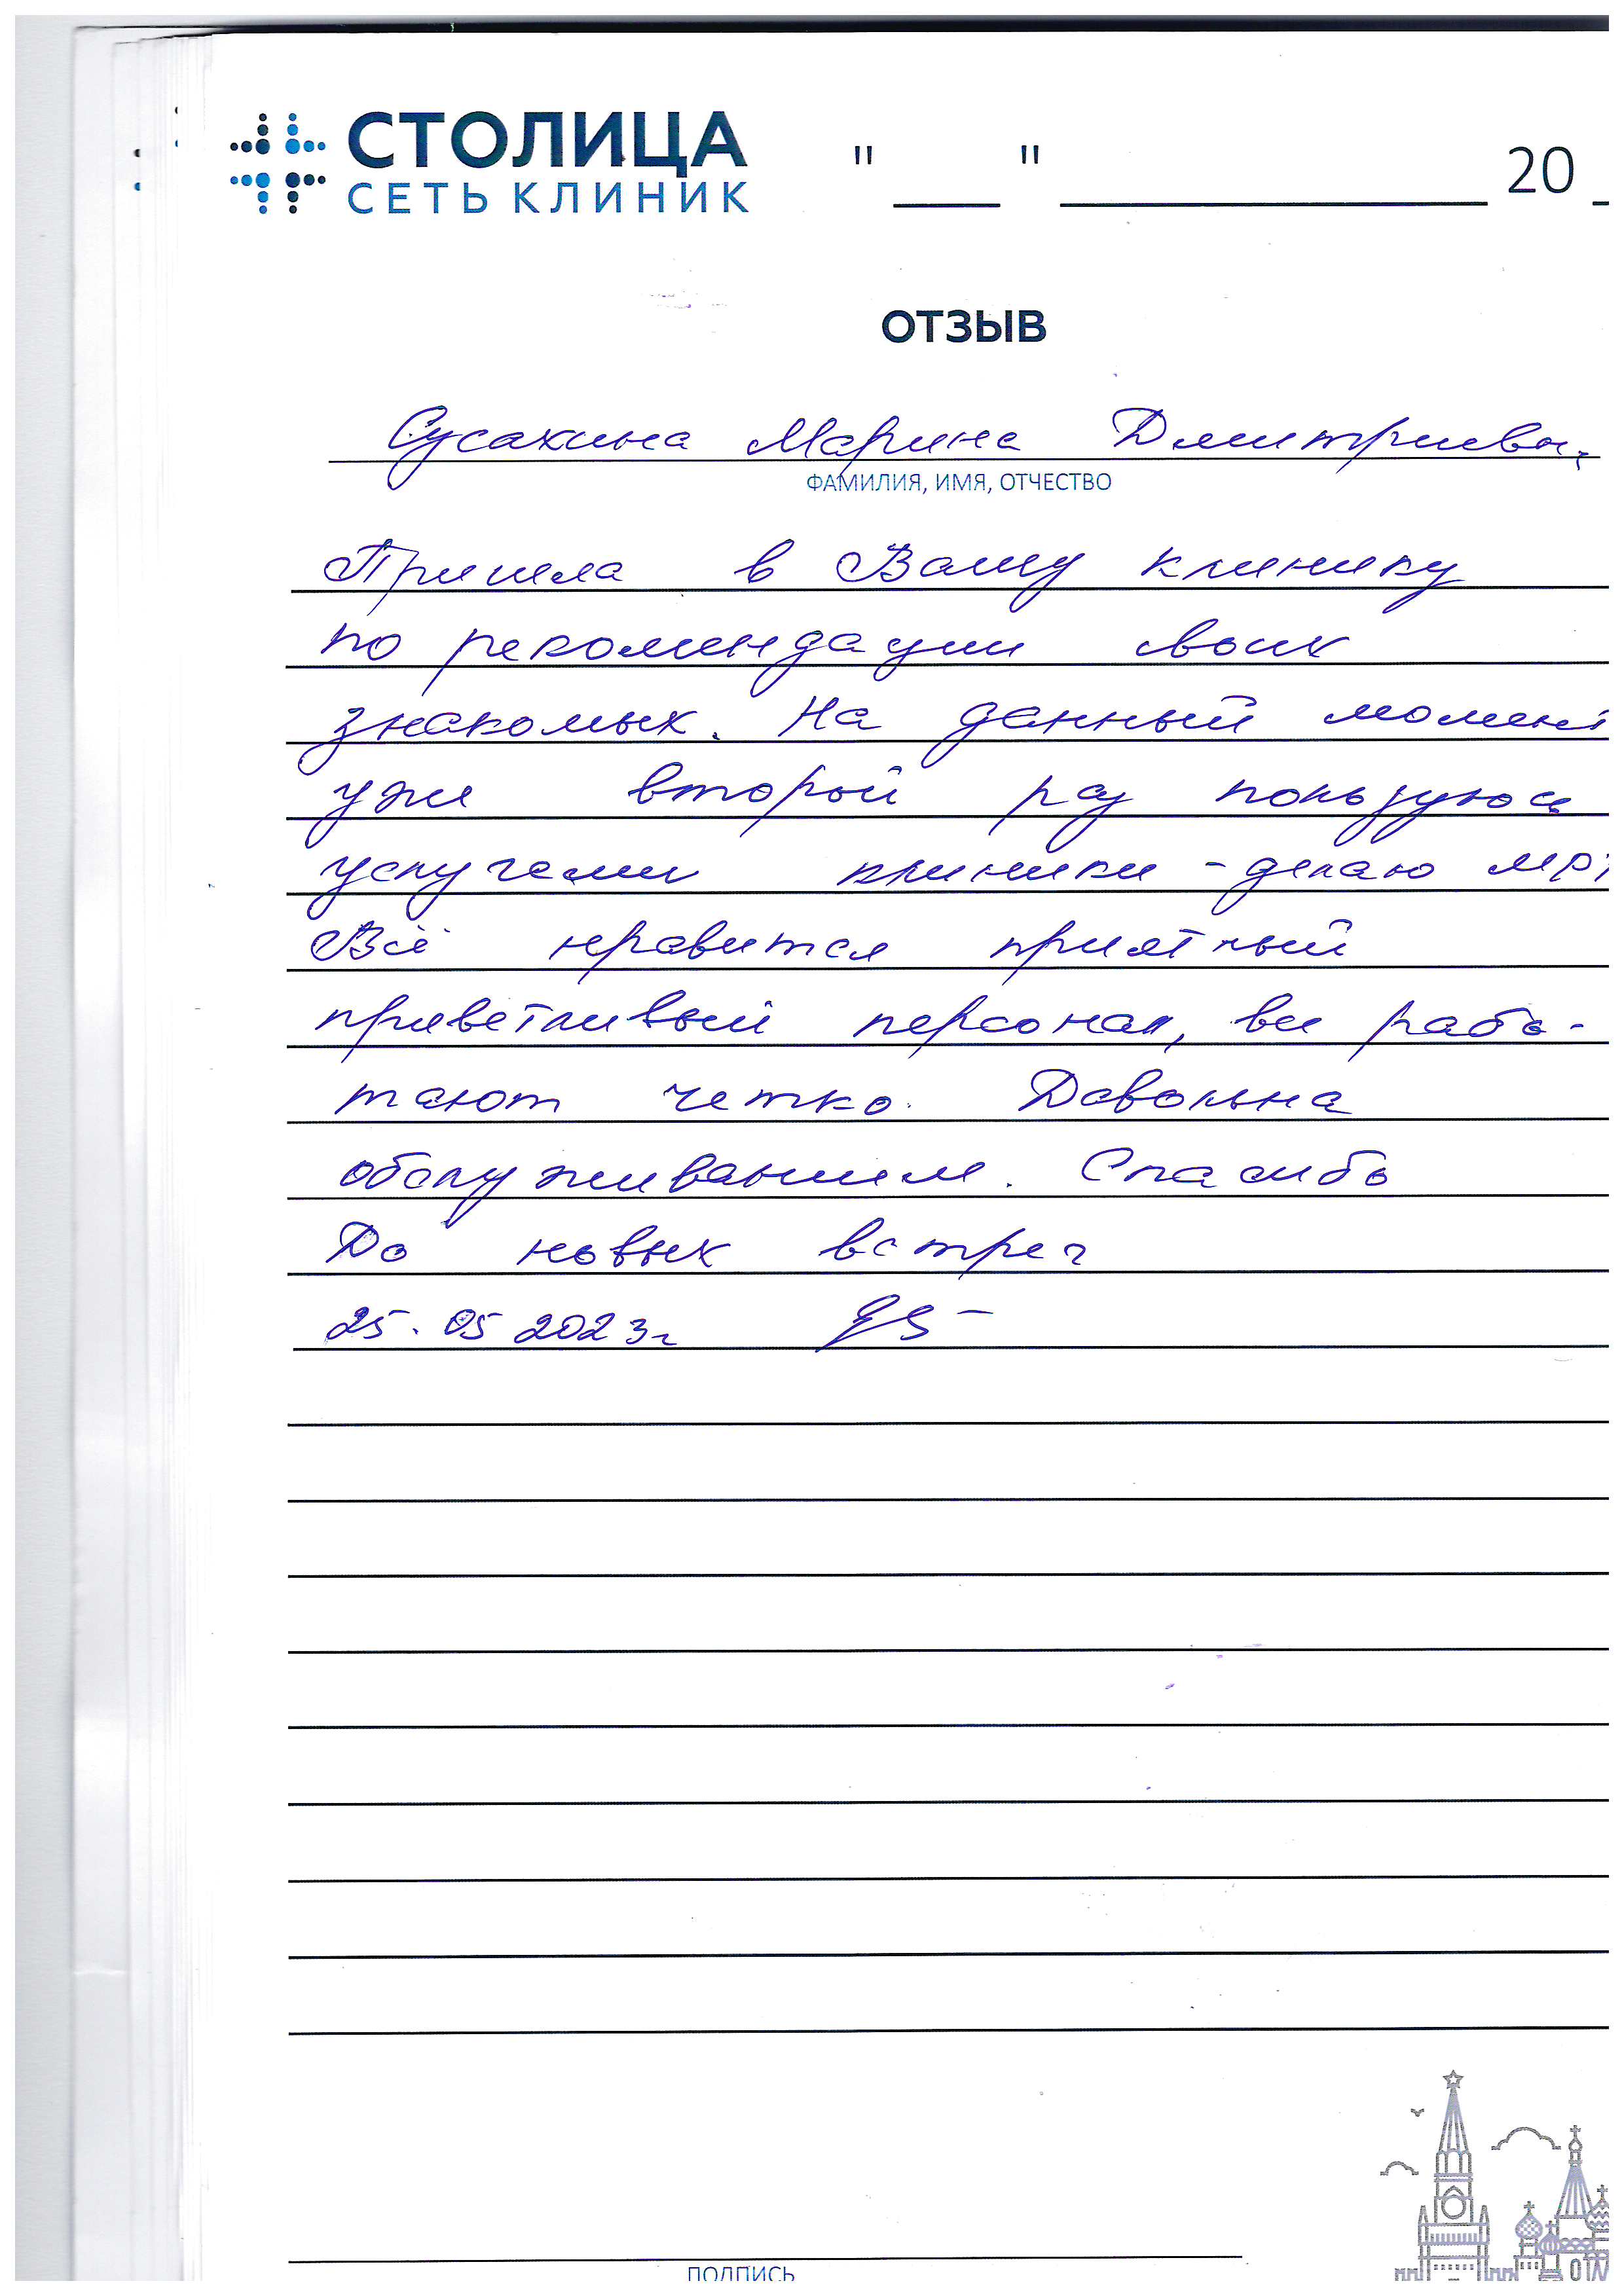 СТОЛИЦА
СЕТЬ КЛИНИК
" " 20
ОТЗЫВ
Марина
ФАМИЛИЯ, ИМЯ, ОТЧЕСТВО
Пришла в Вашу клинику
по рекомендации своих
знакомых. На данный момент
уже второй раз пользуюсь
услугами клиники - делаю мрт
Всё нравится приятный
приветливый персонал, все рабо-
тают четко. Довольна
обслуживанием. Спасибо
До новых встреч
25.05 2023г
ПОДПИСЬ